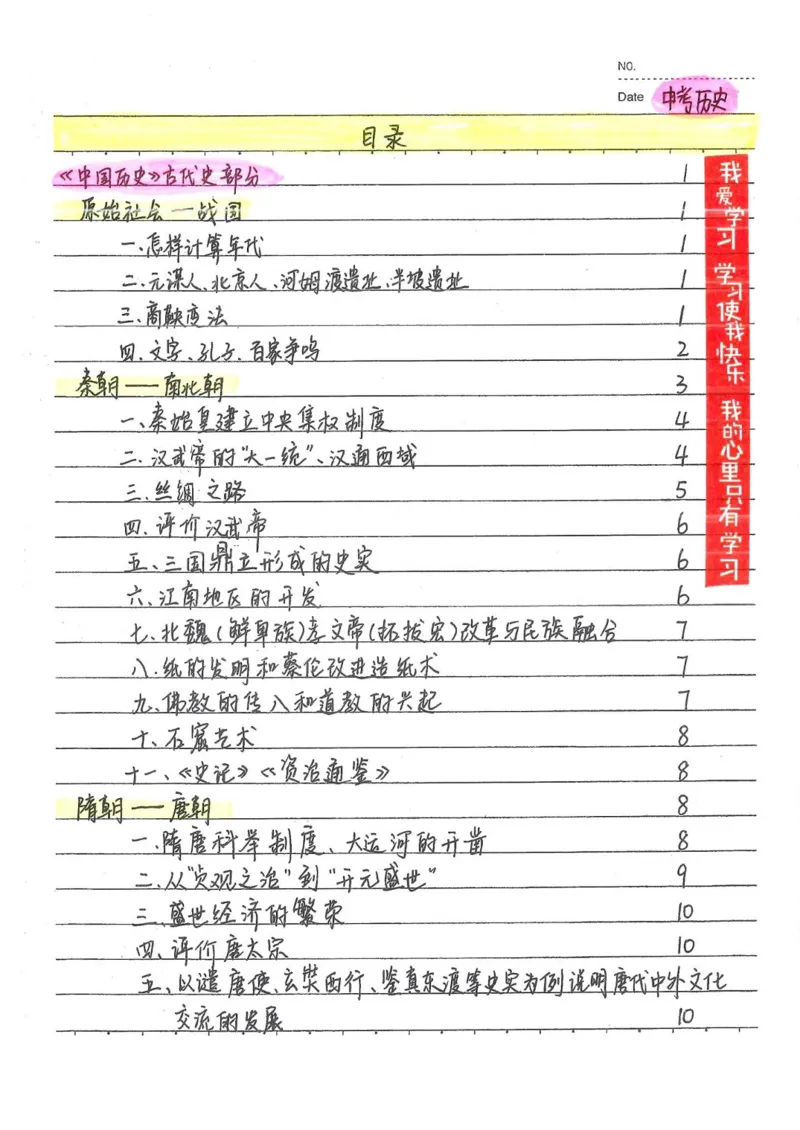 NO.
Date 中考历史
目录
《中国历史》古代史部分 1
原始社会—战国 1
一、怎样计算年代 1
二、元谋人、北京人、河姆渡遗址、半坡遗址 1
三、商鞅变法 1
四、文字、孔子、百家争鸣 2
秦朝——南北朝 3
一、秦始皇建立中央集权制度 4
二、汉武帝的“大一统”、汉通西域 4
三、丝绸之路 5
四、评价汉武帝 6
五、三国鼎立形成的史实 6
六、江南地区的开发 6
七、北魏(鲜卑族)孝文帝(拓拔宏)改革与民族融合 7
八、纸的发明和蔡伦改进造纸术 7
九、佛教的传入和道教的兴起 7
十、石窟艺术 8
十一、《史记》《资治通鉴》 8
隋朝——唐朝 8
一、隋唐科举制度、大运河的开凿 8
二、从“贞观之治”到“开元盛世” 9
三、盛世经济的繁荣 10
四、评价唐太宗 10
五、以遣唐使、玄奘西行、鉴真东渡等史实为例说明唐代中外文化
交流的发展 10
我爱学习 学习使我快乐 我的心里只有学习